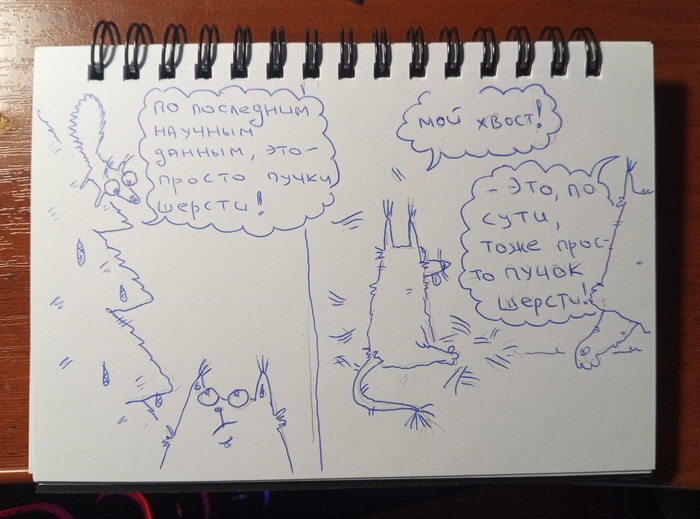 по последним
научным
данным, это-
просто пучки
шерсти!
мой хвост!
- это, по
сути,
тоже прос-
то пучок
шерсти!